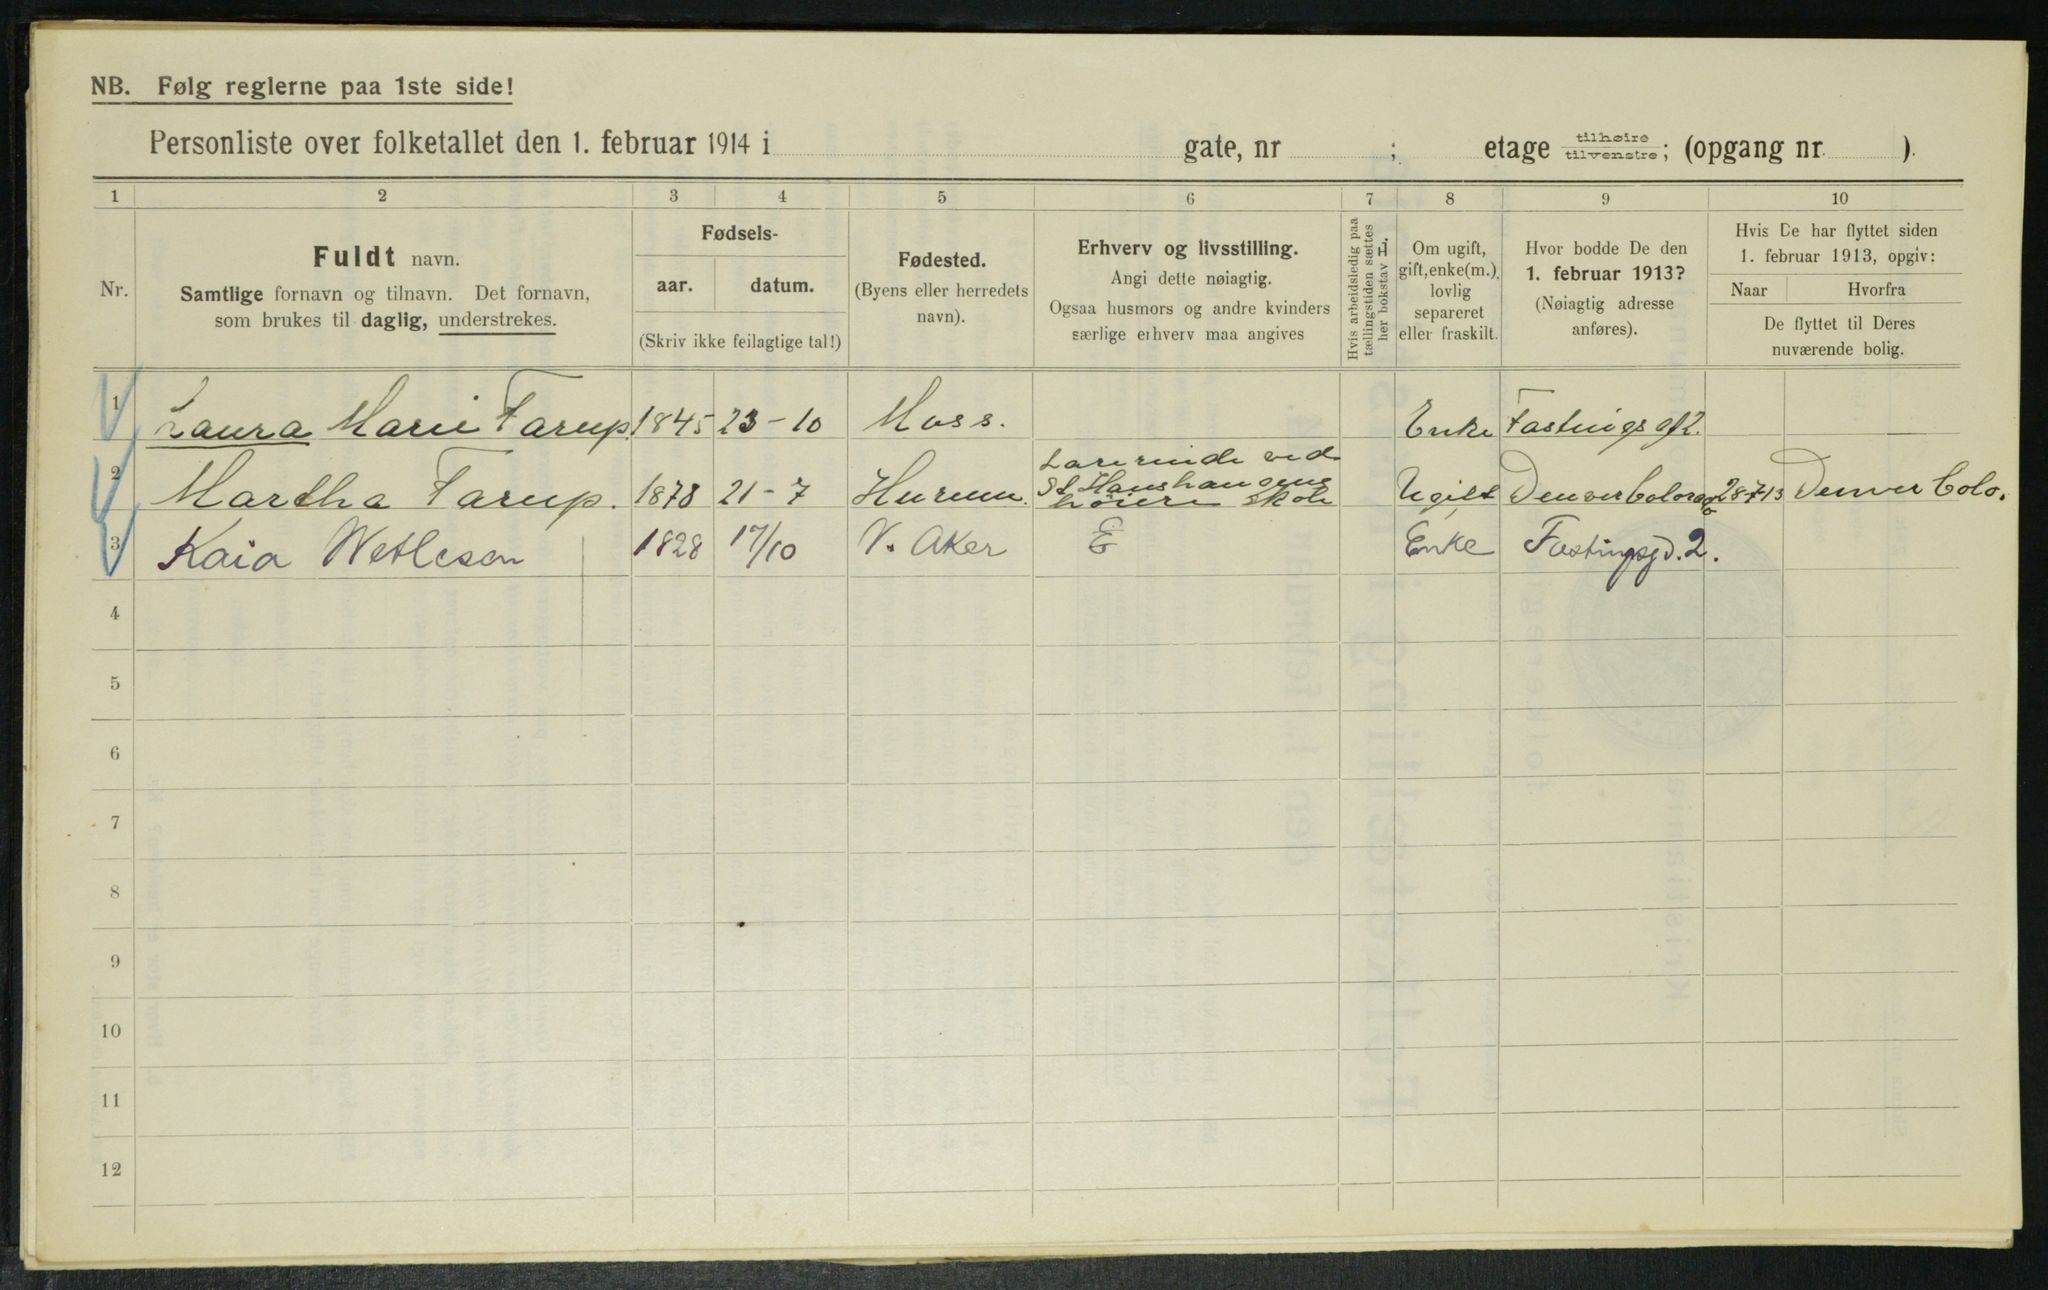 NB. Følg reglerne paa 1ste side!
Personliste over folketallet den 1. februar 1914 i gate, nr ; etage tilhøire tilvenstre; (opgang nr ).
1 2 3 4 5 6 7 8 9 10
Nr.
Fuldt navn.
Samtlige fornavn og tilnavn. Det fornavn,
som brukes til daglig, understrekes.
Fødsels-
aar. datum.
(Skriv ikke feilagtige tal!)
Fødested.
(Byens eller herredets
navn).
Erhverv og livsstilling.
Angi dette nøiagtig.
Ogsaa husmors og andre kvinders
særlige erhverv maa angives
Hvis arbeidsledig paa
tællingstiden sættes
her bokstav L
Om ugift,
gift, enke(m.),
lovlig
separeret
eller fraskilt.
Hvor bodde De den
1. februar 1913?
(Nøiagtig adresse
anføres).
Hvis De har flyttet siden
1. februar 1913, opgiv:
Naar Hvorfra
De flyttet til Deres
nuværende bolig.
1 Laura Marie Farup. 1845 23-10 Moss. Enke Fastings g 2.
2 Martha Farup. 1878 21-7 Hurum. Lærerinde ved
St Hanshaugens
høiere skole Ugift Denver Colorado 28-7-13 Denver Colo.
3 Kaia Wetlesen 1828 17/10 V. Aker E Enke Fastingsgd. 2.
4
5
6
7
8
9
10
11
12